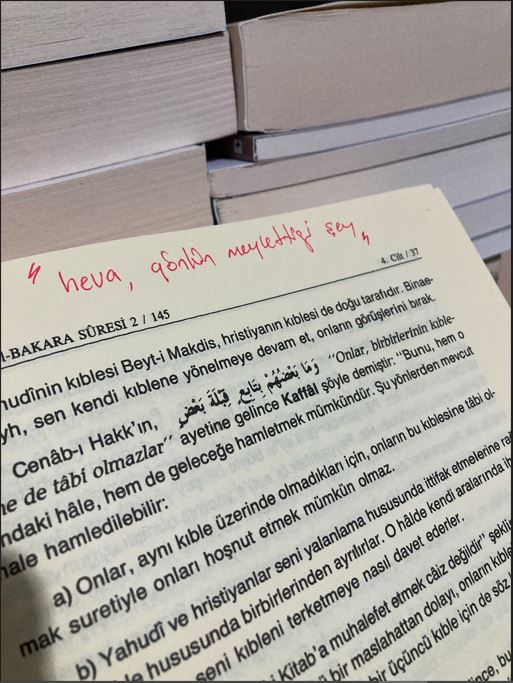 " heva, gönlün meylettiği şey "
4. Cilt / 37
l-BAKARA SÛRESİ 2 / 145
hudînin kıblesi Beyt-i Makdis, hristiyanın kıblesi de doğu tarafıdır. Binae-
yh, sen kendi kıblene yönelmeye devam et, onların görüşlerini bırak.
Cenâb-ı Hakk'ın, وَمَا بَعْضُهُمْ بِتَابِعٍ قِبْلَةَ بَعْضٍ "Onlar, birbirlerinin kıble-
ne de tâbi olmazlar" ayetine gelince Kaffâl şöyle demiştir: "Bunu, hem o
ndaki hâle, hem de geleceğe hamletmek mümkündür. Şu yönlerden mevcut
hale hamledilebilir:
a) Onlar, aynı kıble üzerinde olmadıkları için, onların bu kıblesine tâbi ol-
mak suretiyle onları hoşnut etmek mümkün olmaz.
b) Yahudî ve hristiyanlar seni yalanlama hususunda ittifak etmelerine ra
le hususunda birbirlerinden ayrılırlar. O hâlde kendi aralarında ih
seni kıbleni terketmeye nasıl davet ederler.
i Kitab'a muhalefet etmek câiz değildir" şeklin
bir maslahattan dolayı, onların kıble
bir üçüncü kıble için de söz
ince, bu